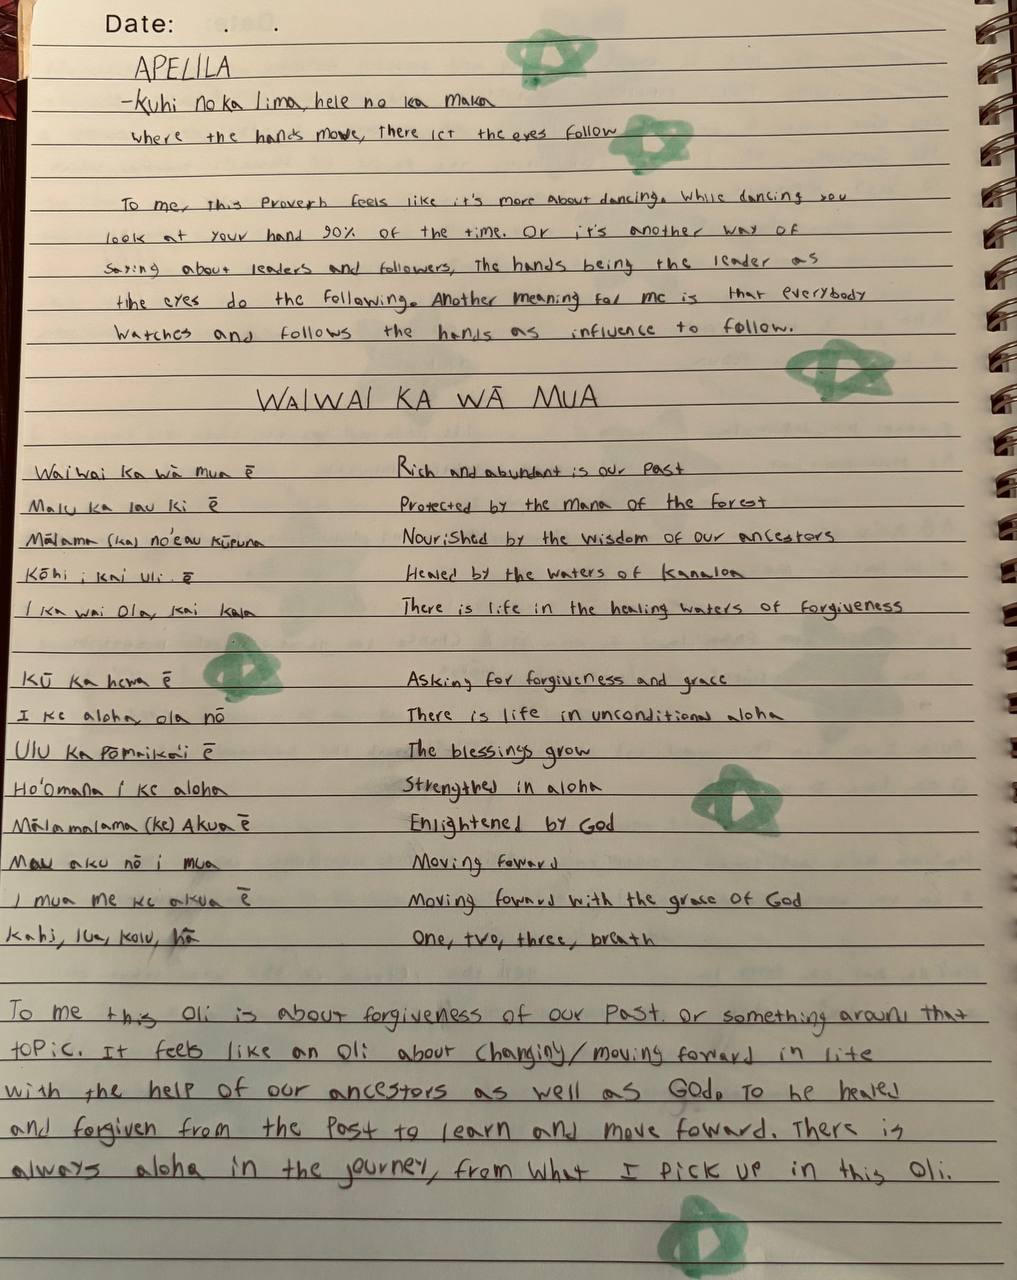 Date: . .
APELILA
-Kuhi no ka lima, hele no ka maka
where the hands move, there let the eyes follow
To me, this Proverb feels like it's more about dancing. While dancing you
look at your hand 90% of the time. Or it's another way of
saying about leaders and followers, The hands being the leader as
the eyes do the following. Another meaning for me is that everybody
watches and follows the hands as influence to follow.
WAIWAI KA WĀ MUA
Waiwai ka wā mua ē
Rich and abundant is our past
Malu ka lau ki ē
Protected by the mana of the forest
Mālama (ka) no'eau kūpuna
Nourished by the wisdom of our ancestors
Kōhi i kai uli ē
Healed by the waters of Kanaloa
I ka wai Ola, kai kala
There is life in the healing waters of forgiveness
Kū ka hewa ē
Asking for forgiveness and grace
I ke aloha, ola nō
There is life in unconditional aloha
Ulu ka Pōmaika'i ē
The blessings grow
Ho'omana i ke aloha
Strengthed in aloha
Mālamalama (ke) Akua ē
Enlightened by God
Mau aku nō i mua
Moving foward
I mua me ke akua ē
Moving foward with the grace of God
Kahi, lua, kolu, hā
One, two, three, breath
To me this Oli is about forgiveness of our Past. Or something around that
topic. It feels like an Oli about changing/moving foward in life
with the help of our ancestors as well as God. To be healed
and forgiven from the Past to learn and move foward. There is
always aloha in the journey, from what I pick up in this Oli.